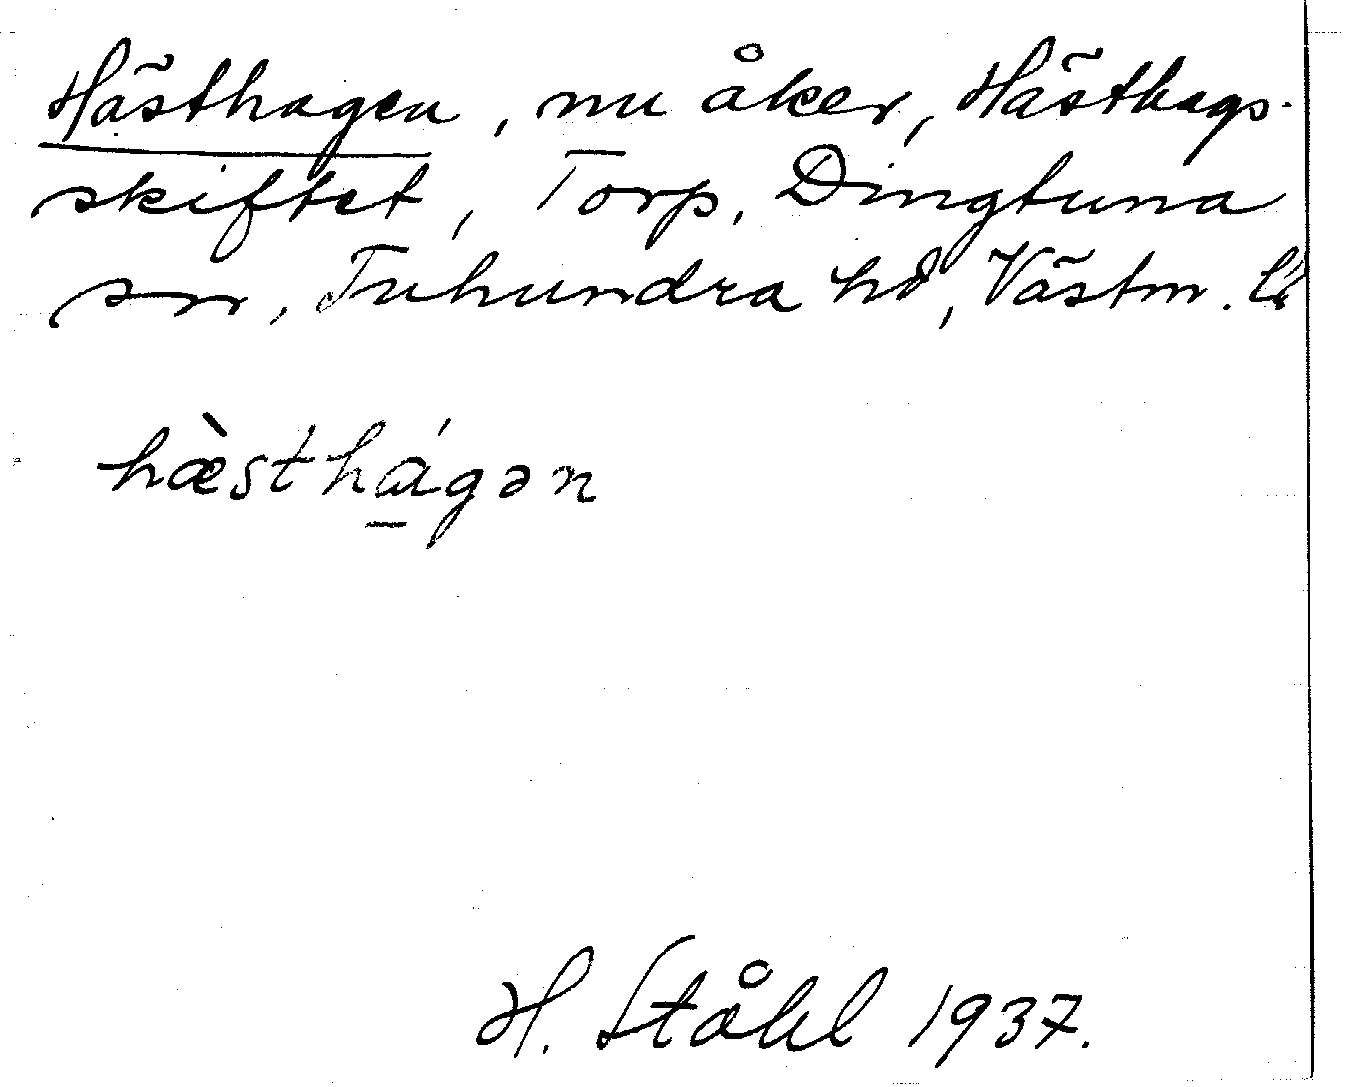 Hästhagen, nu åker, Hästhags-
skiftet, Torp, Dingtuna
sn, Tuhundra hd, Västm. l.
hæ̀sthа̱́gən
H. Ståhl 1937.